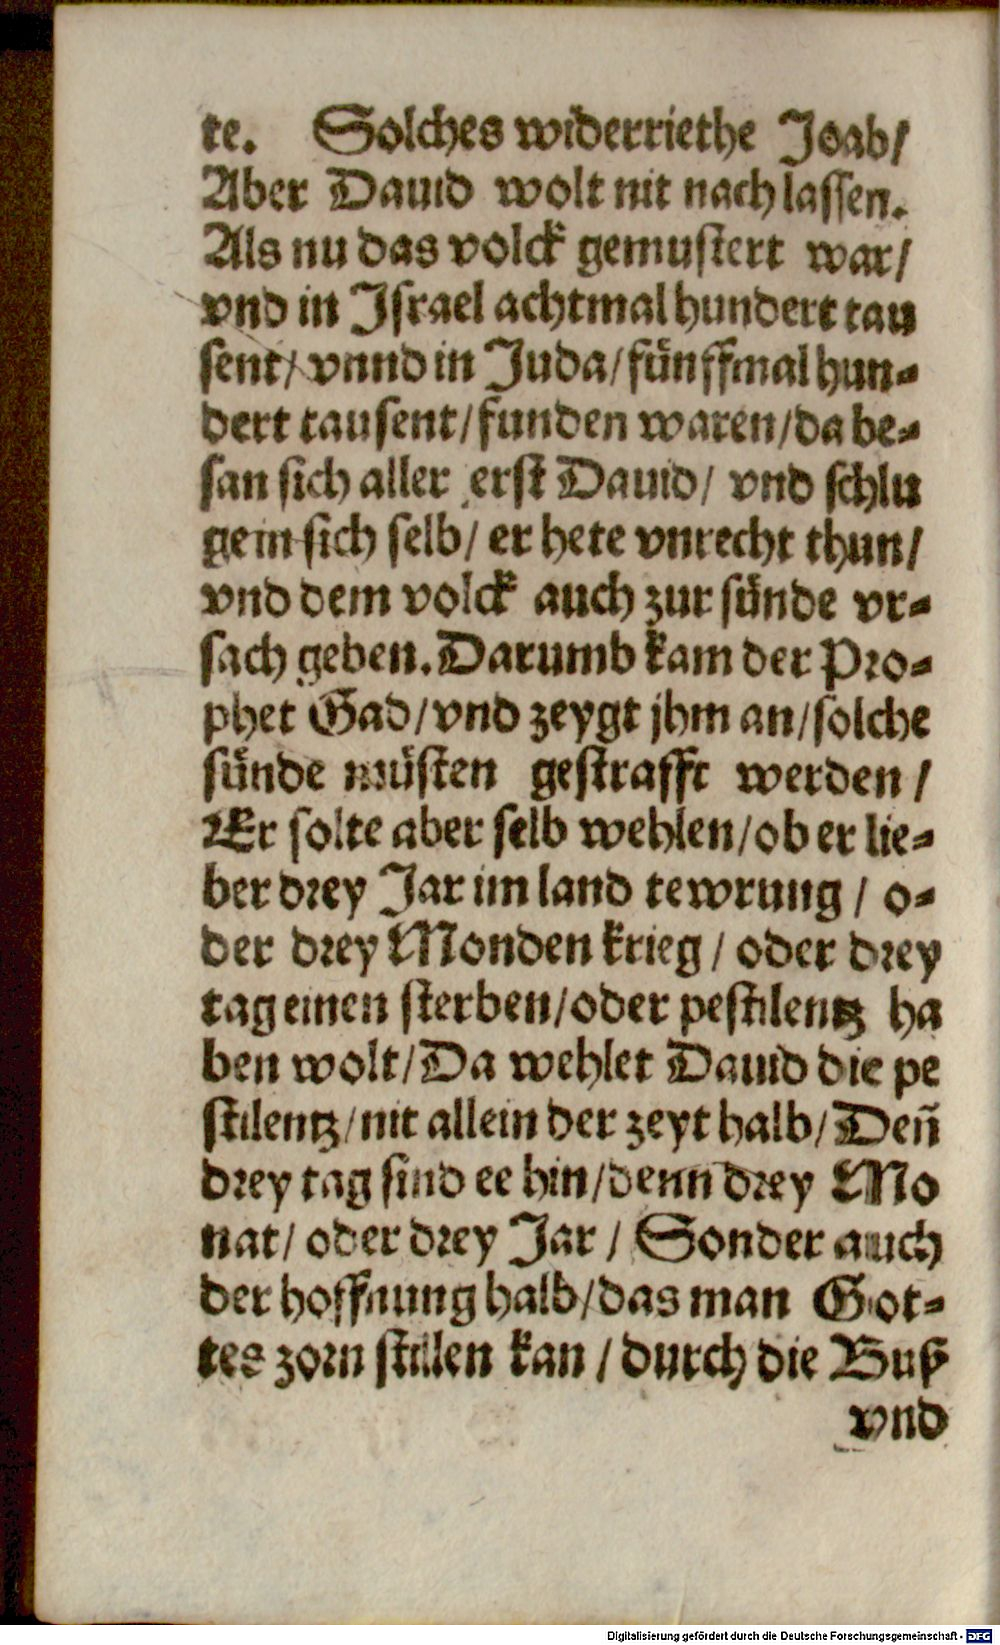 te. Solches widerriethe Joab/
Aber Dauid wolt nit nach lassen.
Als nu das volck gemustert war/
vnd in Israel achtmal hundert tau
sent/ vnnd in Juda/ fünffmal hun-
dert tausent/ funden waren/ da be-
san sich aller erst Dauid/ vnd schlu
g ein sich selb/ er hete vnrecht thun/
vnd dem volck auch zur sünde vr-
sach geben. Darumb kam der Pro-
phet Gad/ vnd zeygt jhm an/ solche
sünde müsten gestrafft werden/
Er solte aber selb wehlen/ ob er lie-
ber drey Jar im land tewrung/ o-
der drey Monden krieg/ oder drey
tag einen sterben/ oder pestilentz ha
ben wolt/ Da wehlet Dauid die pe
stilentz/ nit allein der zeyt halb/ Deñ
drey tag sind ee hin/ denn drey Mo
nat/ oder drey Jar/ Sonder auch
der hoffnung halb/ das man Got-
tes zorn stillen kan/ durch die Buß
vnd
Digitalisierung gefördert durch die Deutsche Forschungsgemeinschaft - DFG